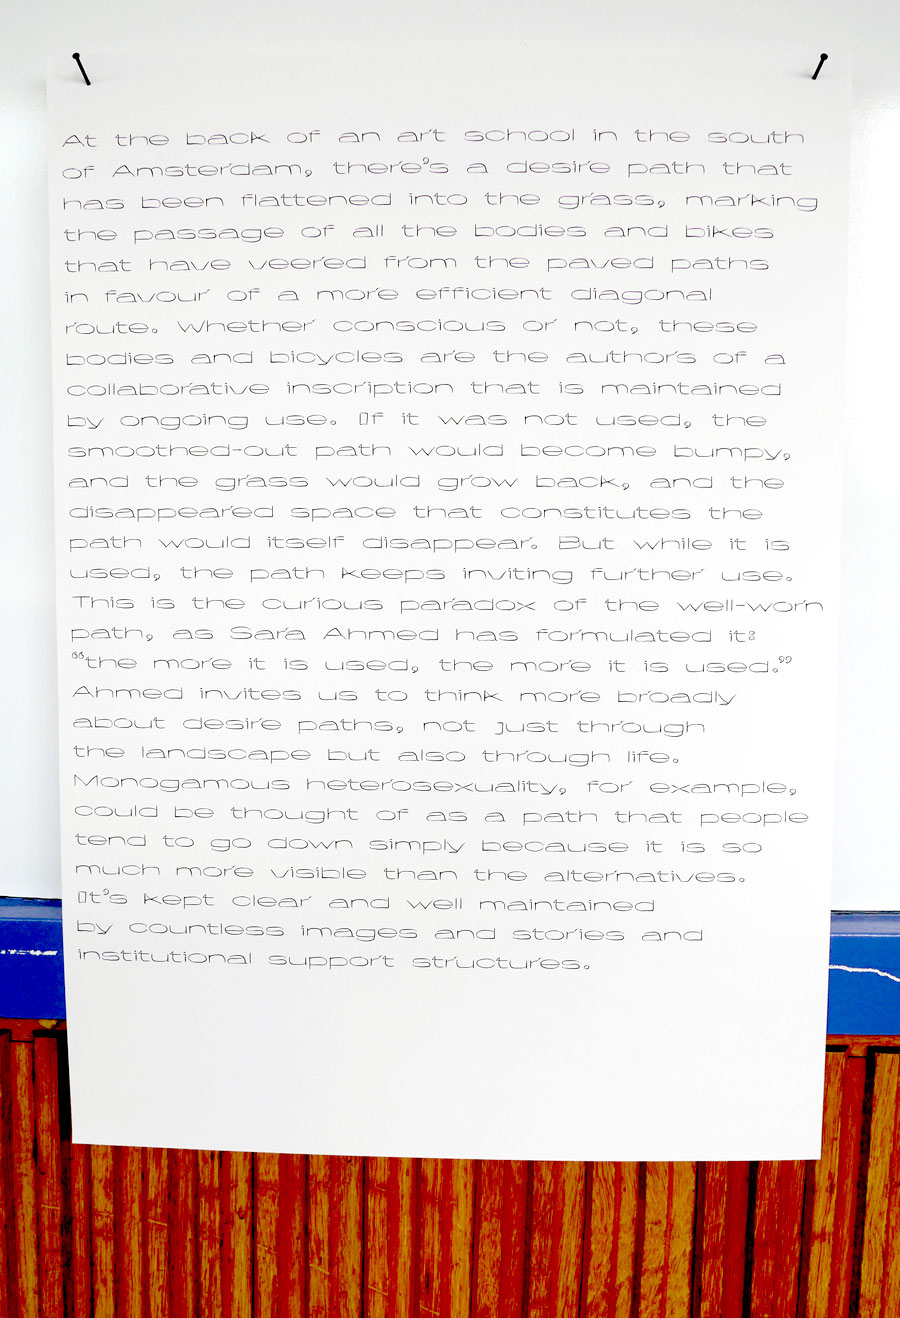 At the back of an art school in the south
of Amsterdam, there's a desire path that
has been flattened into the grass, marking
the passage of all the bodies and bikes
that have veered from the paved paths
in favour of a more efficient diagonal
route. Whether conscious or not, these
bodies and bicycles are the authors of a
collaborative inscription that is maintained
by ongoing use. If it was not used, the
smoothed-out path would become bumpy,
and the grass would grow back, and the
disappeared space that constitutes the
path would itself disappear. But while it is
used, the path keeps inviting further use.
This is the curious paradox of the well-worn
path, as Sara Ahmed has formulated it:
“the more it is used, the more it is used.”
Ahmed invites us to think more broadly
about desire paths, not just through
the landscape but also through life.
Monogamous heterosexuality, for example,
could be thought of as a path that people
tend to go down simply because it is so
much more visible than the alternatives.
It's kept clear and well maintained
by countless images and stories and
institutional support structures.